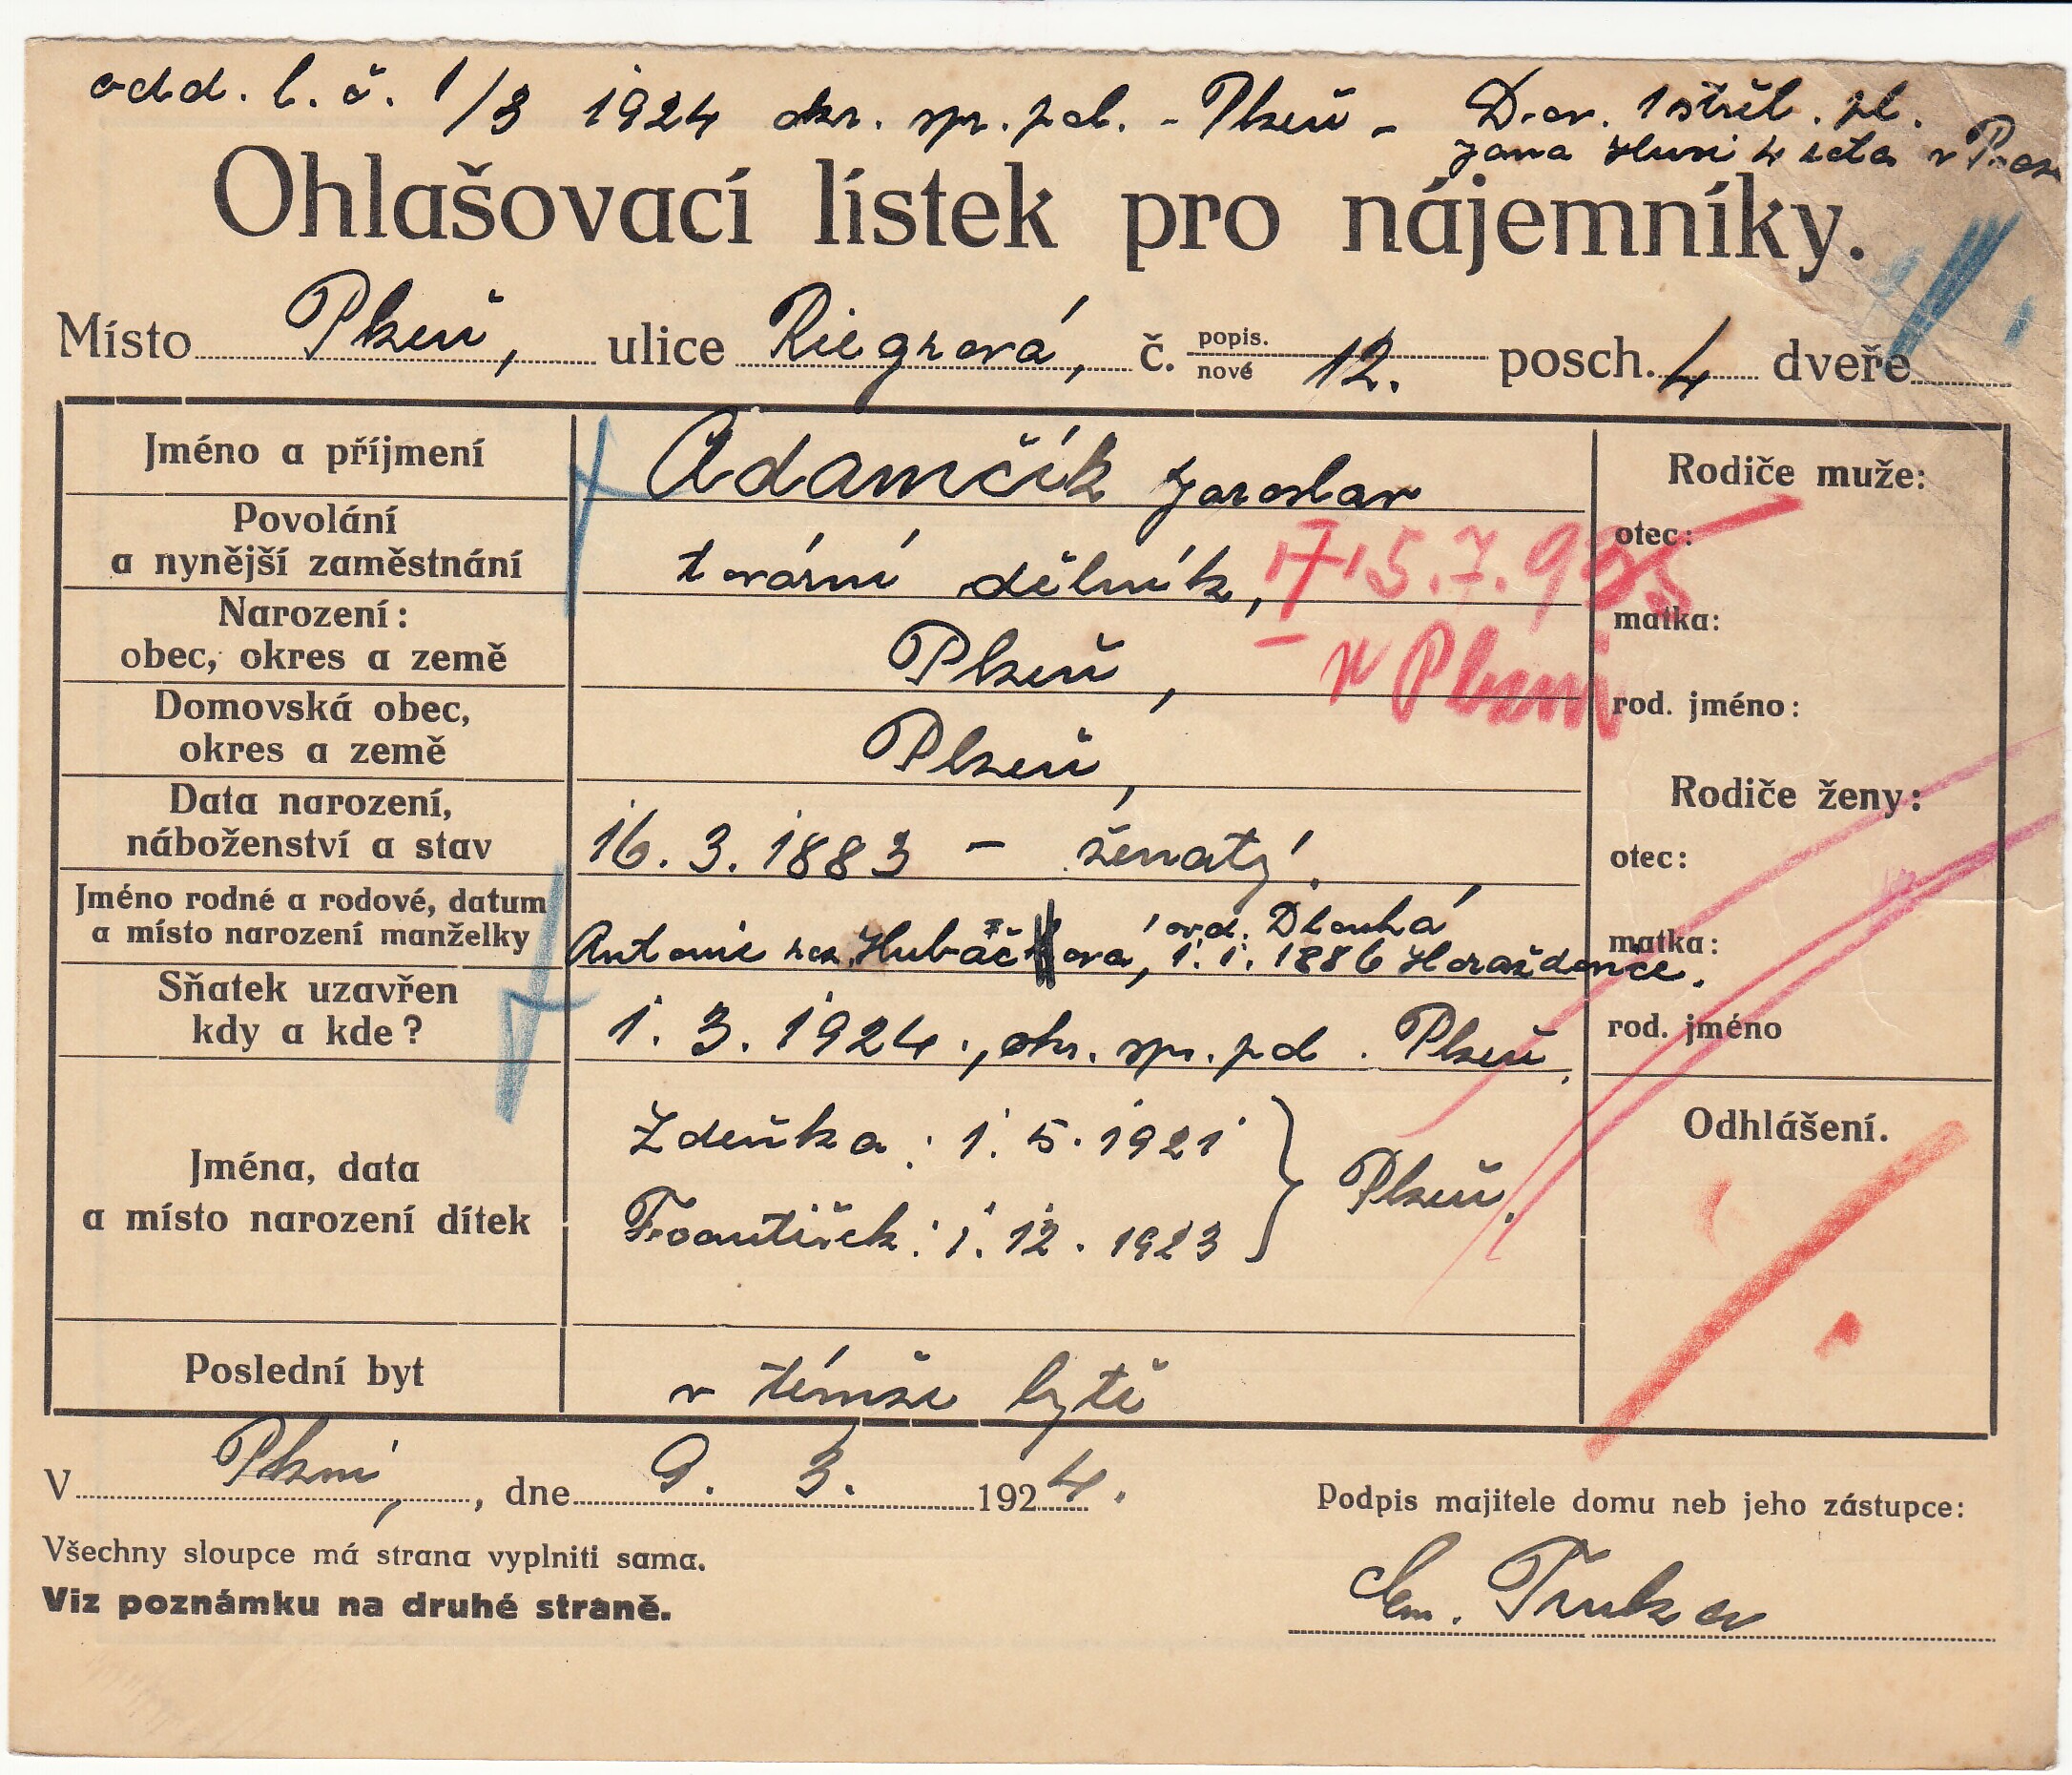 odd. l. č. 1/3 1924 okr. spr. pol. - Plzeň - D.ov. 1 střel. pl.
Jana Husi 4 seta v
Ohlašovací lístek pro nájemníky.
Místo Plzeň, ulice Riegrová, č. popis. nové 12. posch. 4 dveře
Jméno a příjmení Adamčík Jaroslav
Rodiče muže:
Povolání
a nynější zaměstnání tovární dělník,
† 15.7.935
v Plzni
otec:
matka:
rod. jméno:
Narození:
obec, okres a země Plzeň,
Domovská obec,
okres a země Plzeň,
Rodiče ženy:
Data narození,
náboženství a stav 16. 3. 1883 – ženatý.
otec:
matka:
rod. jméno
Jméno rodné a rodové, datum
a místo narození manželky
ovd. Dlouhá
Antonie roz. Hubáčová, 1. 1. 1886 Horaždovice.
Sňatek uzavřen
kdy a kde? 1. 3. 1924., okr. spr. pol. Plzeň.
Odhlášení.
Jména, data
a místo narození dítek
Zdeňka: 1. 5. 1921
František: 1. 12. 1923 } Plzeň.
Poslední byt v témže bytě
V Plzni, dne 9. 3. 1924.
Podpis majitele domu neb jeho zástupce:
Všechny sloupce má strana vyplniti sama.
Viz poznámku na druhé straně.